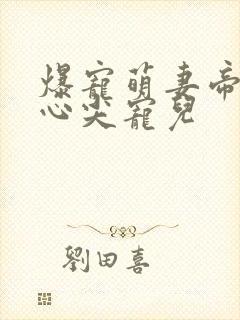 爆寵萌妻帝
心尖寵兒
劉田喜